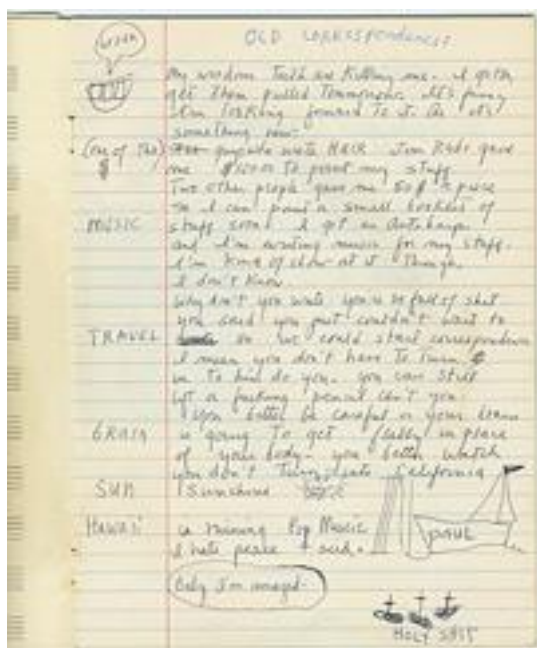 OLD CORRESPONDENCE?
My wisdom Teeth are Killing me. I gotta
get Them pulled Tommorow. It's funny
I'm looking forward To it. As it's
something new.
(one of the) guys who wrote HAIR Jim Rado gave
$
me $5000 To print my stuff
Two other people gave me 50 $ a piece
so I can print a small booklet of
MUSIC
stuff soon. I got an Autoharp
and I'm writing music for my stuff.
I'm kind of slow at it Though.
I don't Know
why don't you write you're so full of shit
you said you just couldn't wait to
TRAVEL
so we could start correspondence
I mean you don't have To turn $
in To him do you. you can still
get a fucking pencil can't you.
you better be careful or your brain
GRASS
is going To get flabby in place
of your body. you better watch
you don't Turn into California
SUN
Sunshine
HAWAII
is ruining Pop Music
I hate peace
PAUL
Only I'm
HOLY SHIT